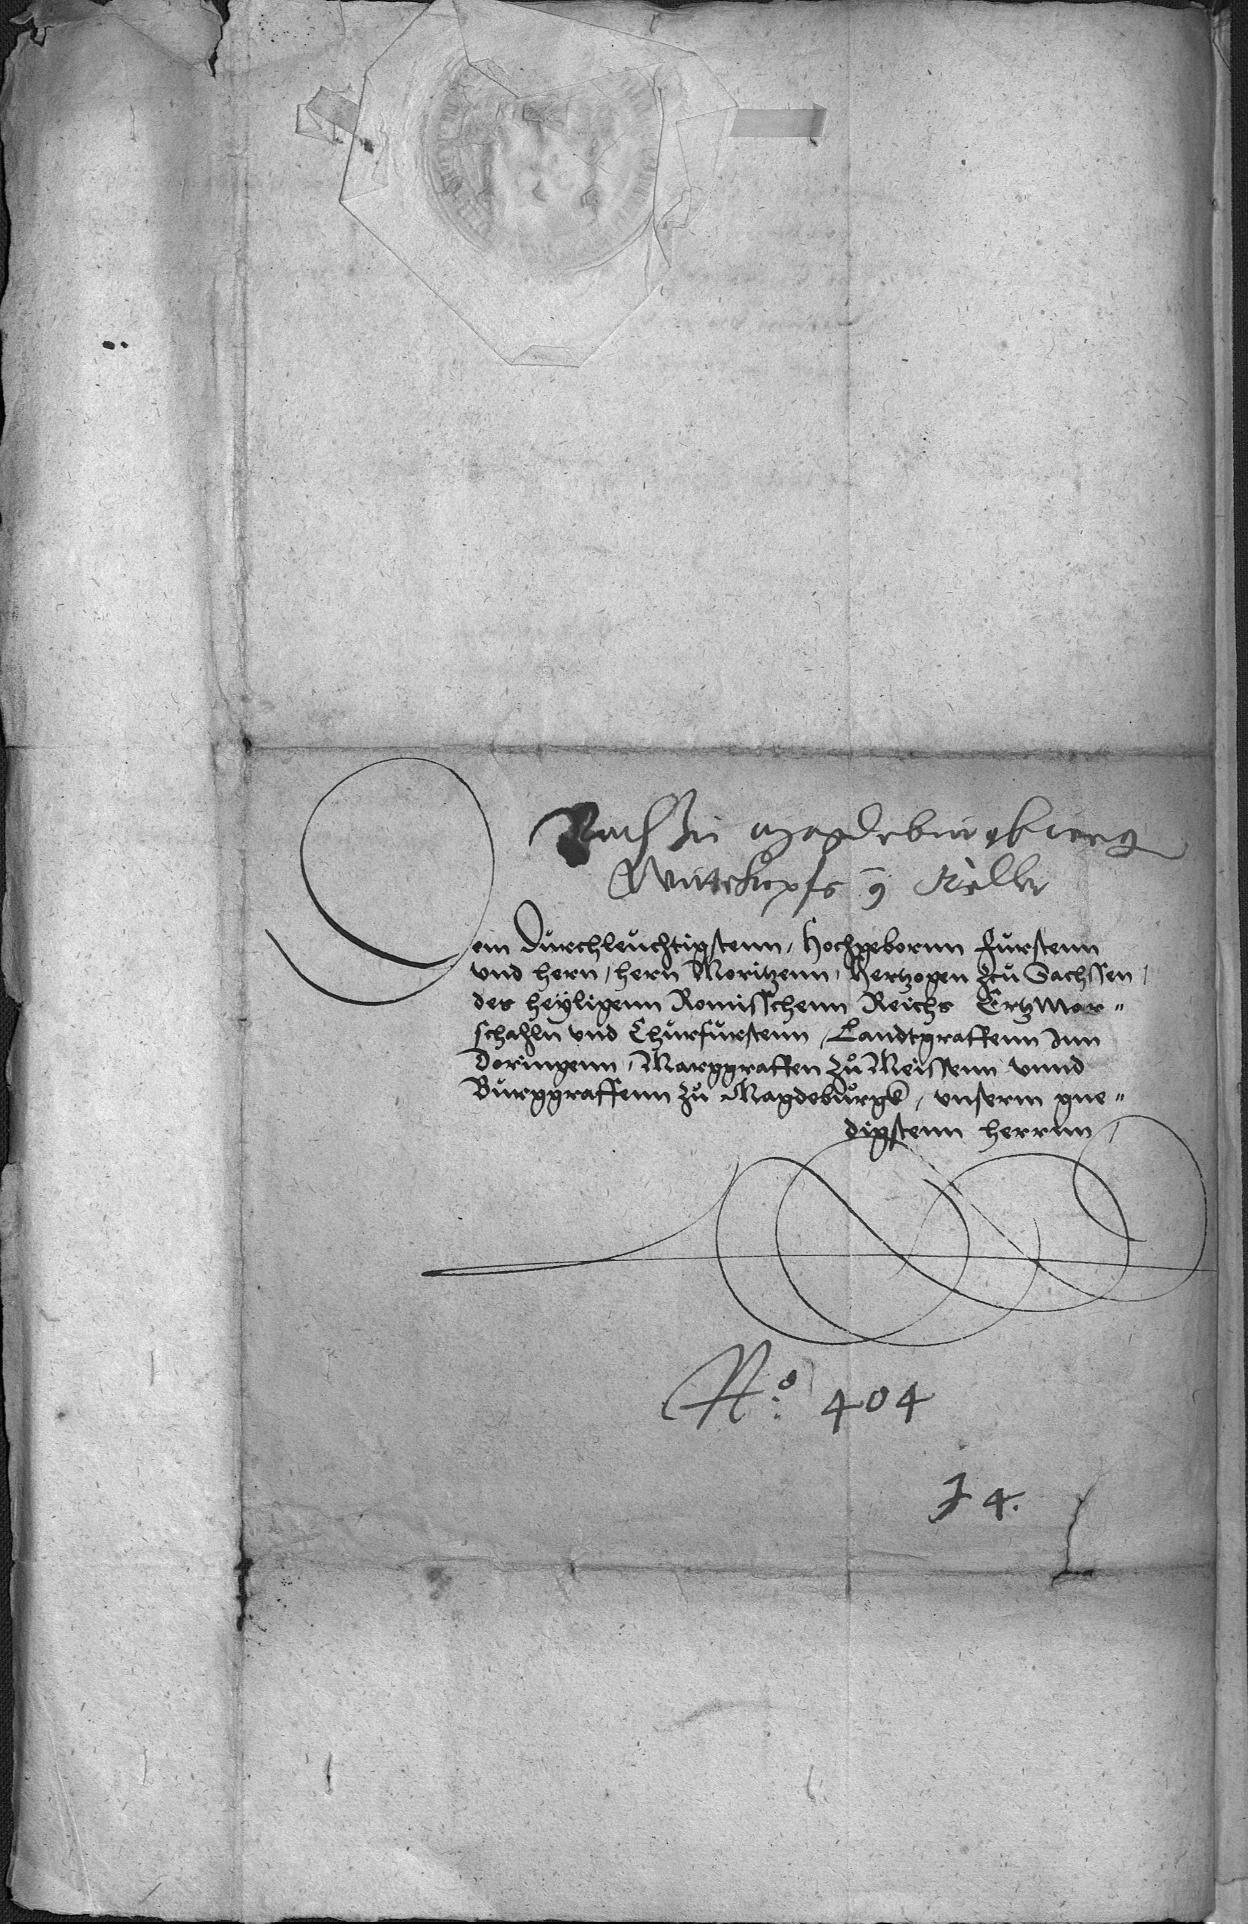 Rath zu Magdeburgk wieg
Wittekopfs Keller
Dem Durchleuchtigstenn, Hochgebornn Furstenn
vnd hern, hern Moritzenn, Hertzogen zcu Sachssen,
des heyligenn Romisschenn Reichs Ertzmar-
schahln vnd Churfurstenn, Landtgraffenn Inn
Doringenn, Marggraffen zu Meissenn vnnd
Burggraffenn zu Magdeburgk, vnserm gne-
digstenn herrnn
No: 404
J 4.